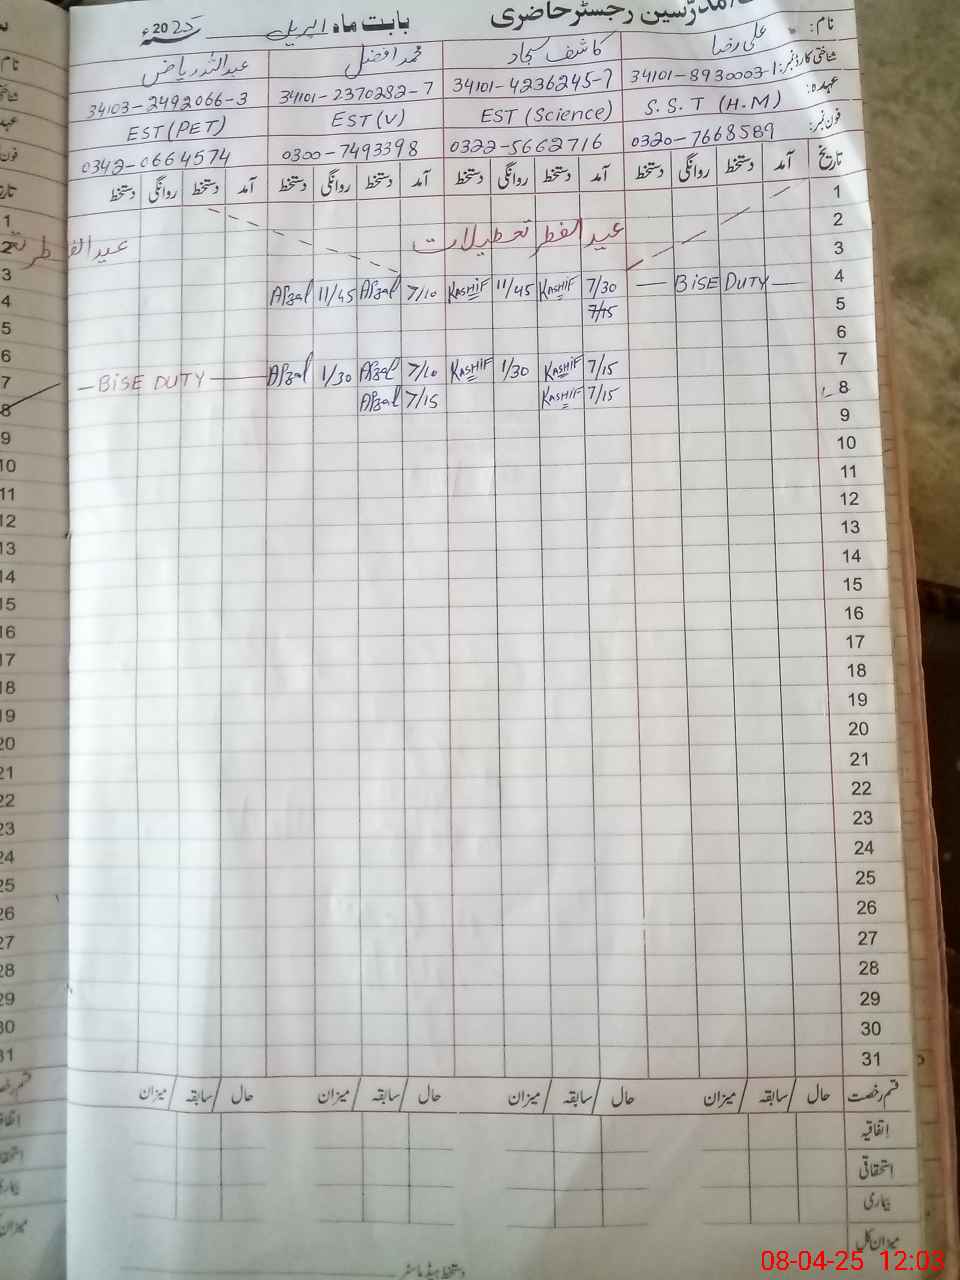 مدرّسین رجسٹر حاضری بابت ماہ اپریل 2025ء
نام: علی رضا کاشف سجاد محمد افضل عبداللہ ریاض
شناختی کارڈ نمبر: 34101-8930003-1 34101-4236245-7 34101-2370282-7 34103-2492066-3
عہدہ: S.S.T (H.M) EST (Science) EST (V) EST (PET)
فون نمبر: 0320-7668589 0322-5662716 0300-7493398 0342-0664574
تاریخ آمد دستخط روانگی دستخط آمد دستخط روانگی دستخط آمد دستخط روانگی دستخط آمد دستخط روانگی دستخط
1
2 عید الفطر تعطیلات عید الفطر
3
4 — BISE DUTY — 7/30 KASHIF 11/45 KASHIF 7/10 Afzal 11/45 Afzal
5 7/15
6
7 7/15 KASHIF 1/30 KASHIF 7/10 Afzal 1/30 Afzal — BISE DUTY —
8 7/15 KASHIF 7/15 Afzal
9
10
11
12
13
14
15
16
17
18
19
20
21
22
23
24
25
26
27
28
29
30
31
قسم رخصت حال / سابقہ / میزان حال / سابقہ / میزان حال / سابقہ / میزان حال / سابقہ / میزان
اتفاقیہ
استحقاقی
بیماری
میزان کل
دستخط ہیڈ ماسٹر
08-04-25 12:03